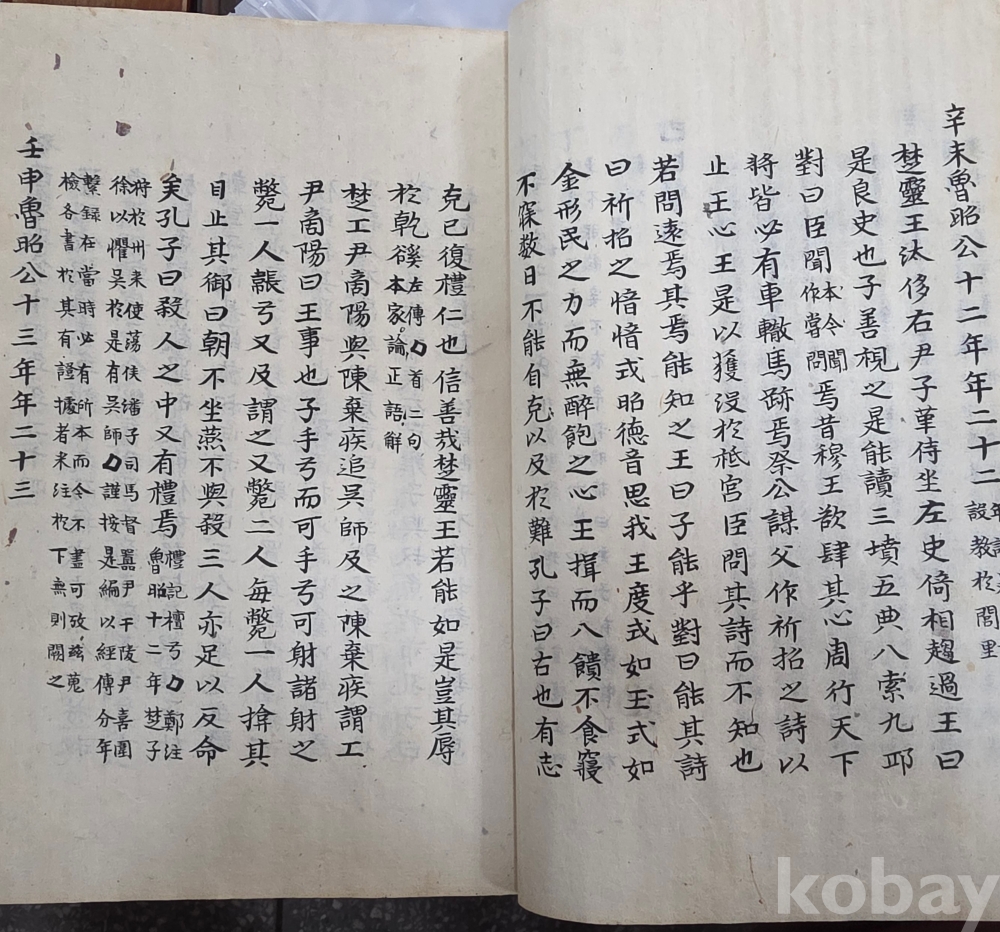 辛未魯昭公十二年年二十二
設教於閭里
楚靈王汰侈右尹子革侍坐左史倚相趨過王曰
是良史也子善視之是能讀三墳五典八索九邱
對曰臣聞作嘗問本今聞焉昔穆王欲肆其心周行天下
將皆必有車轍馬跡焉祭公謀父作祈招之詩以
止王心王是以獲沒於祗宮臣問其詩而不知也
若問遠焉其焉能知之王曰子能乎對曰能其詩
曰祈招之愔愔式昭德音思我王度式如玉式如
金形民之力而無醉飽之心王揖而入饋不食寢
不寐數日不能自克以及於難孔子曰古也有志
克己復禮仁也信善哉楚靈王若能如是豈其辱
於乾谿左傳首二句
本家論正語解
楚工尹商陽與陳棄疾追吳師及之陳棄疾謂工
尹商陽曰王事也子手弓而可手弓可射諸射之
斃一人韔弓又及謂之又斃二人每斃一人揜其
目止其御曰朝不坐燕不與殺三人亦足以反命
矣孔子曰殺人之中又有禮焉禮記檀弓鄭注
魯昭十二年楚子
狩於州来使蕩侯潘子司馬督囂尹午陵尹喜圍
徐以懼吳於是有吳師謹按是編以經傳分年
繫録在當時必有所本而今不盡可攷茲蒐
檢各書於其有證據者来注於下無則闕之
壬申魯昭公十三年年二十三
kobay